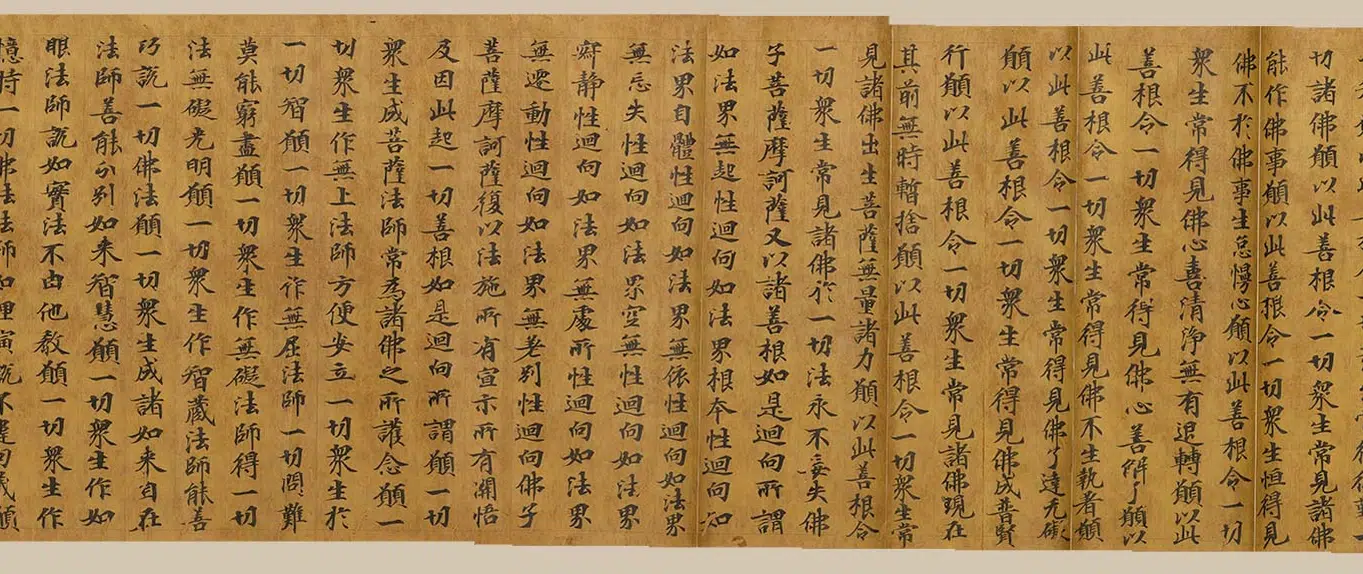 切諸佛願以此善根令一切衆生常見諸佛
能作佛事願以此善根令一切衆生恒得見
佛不於佛事生怠慢心願以此善根令一切
衆生常得見佛心喜清淨無有退轉願以此
善根令一切衆生常得見佛心善解了願以
此善根令一切衆生常得見佛不生執著願
以此善根令一切衆生常得見佛了達无礙
願以此善根令一切衆生常得見佛成普賢
行願以此善根令一切衆生常見諸佛現在
其前無時暫捨願以此善根令一切衆生常
見諸佛出生菩薩無量諸力願以此善根令
一切衆生常見諸佛於一切法永不忘失佛
子菩薩摩訶薩又以諸善根如是迴向所謂
如法界無起性迴向如法界根本性迴向如
法界自體性迴向如法界無依性迴向如法界
無忘失性迴向如法界空無性迴向如法界
寂静性迴向如法界無處所性迴向如法界
無遷動性迴向如法界無差別性迴向佛子
菩薩摩訶薩復以法施所有宣示所有開悟
及因此起一切善根如是迴向所謂願一切
衆生成菩薩法師常為諸佛之所護念願一
切衆生作無上法師方便安立一切衆生於
一切智願一切衆生作無屈法師一切問難
莫能窮盡願一切衆生作無礙法師得一切
法無礙光明願一切衆生作智藏法師能善
巧説一切佛法願一切衆生成諸如来自在
法師善能分別如来智慧願一切衆生作如
眼法師説如實法不由他教願一切衆生作
憶持一切佛法法師如理演説不違句義願